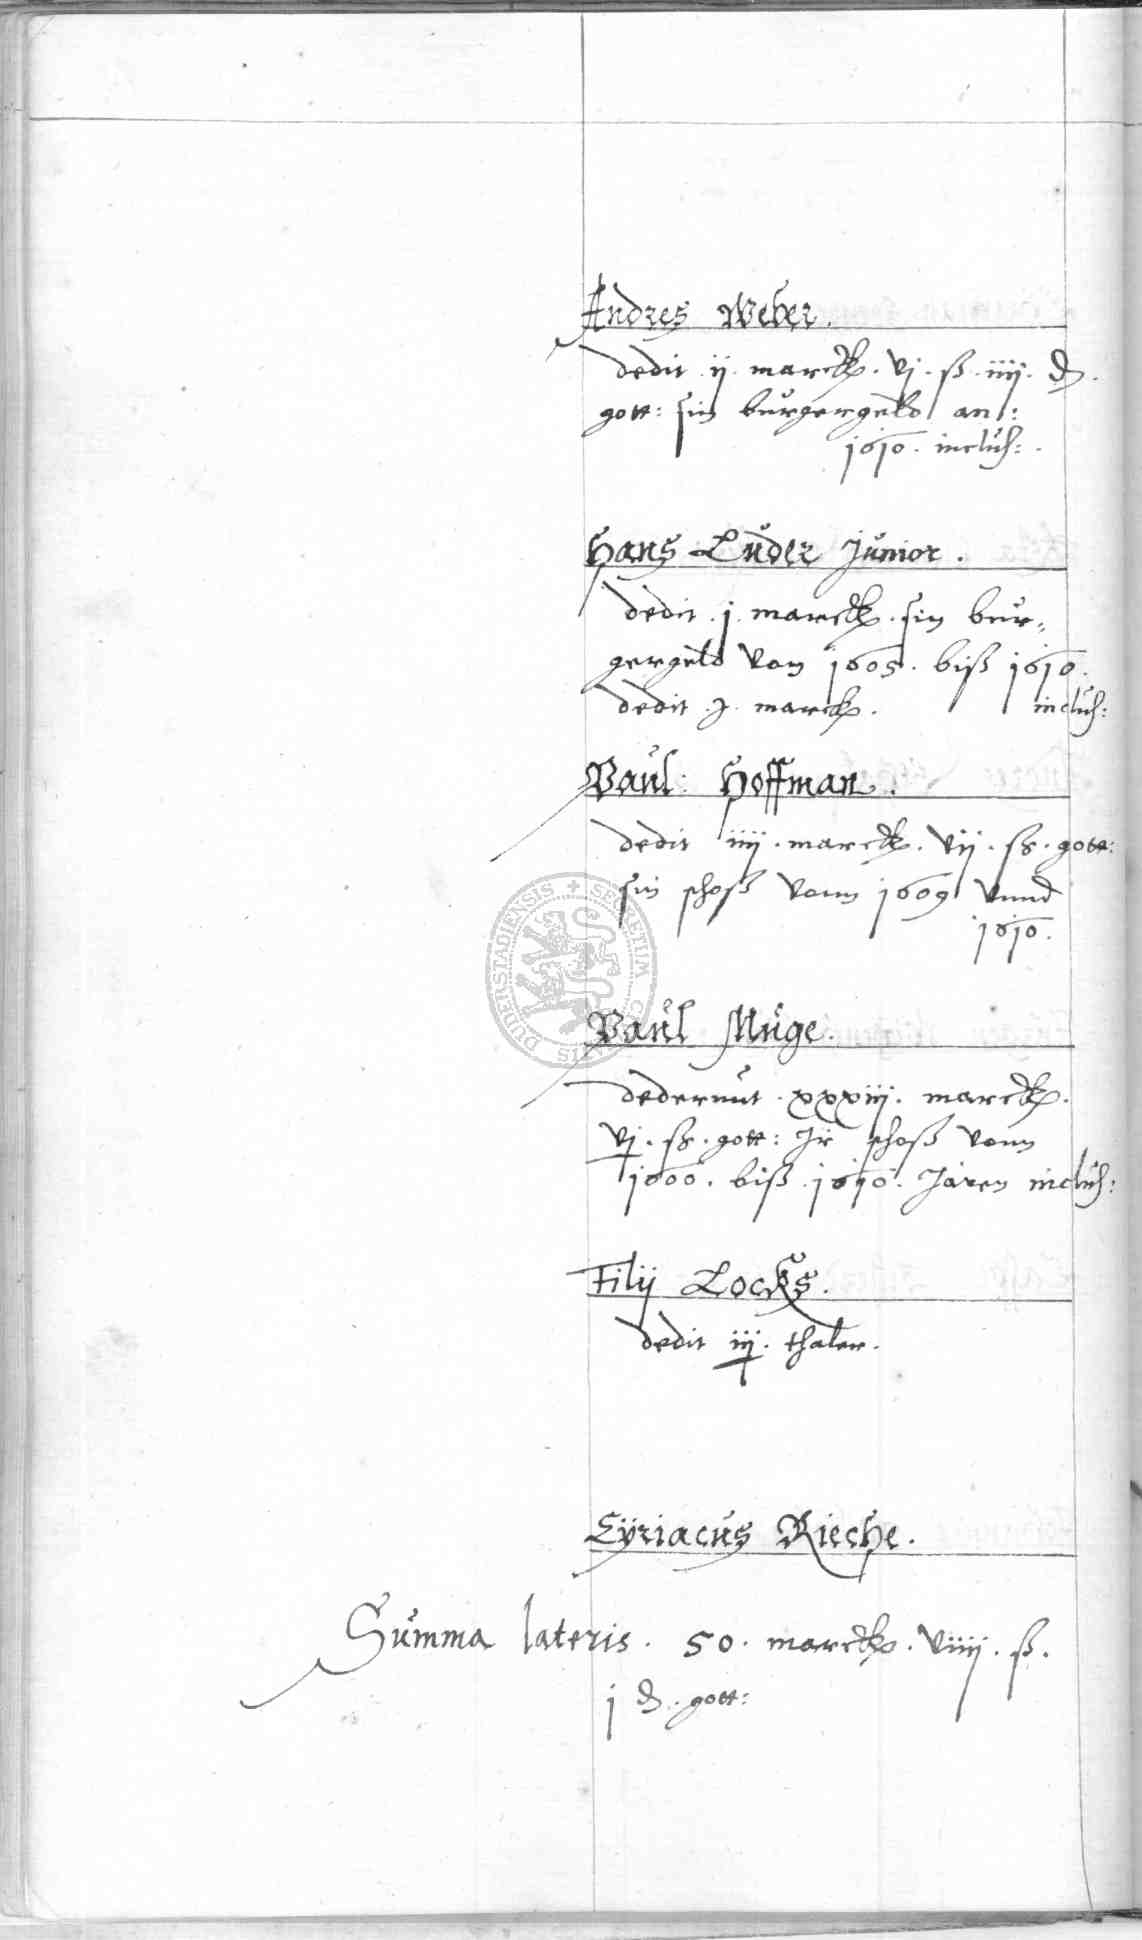 Andres Weber.
dedit ij. marck. vj. ß. iiij. ₰.
gott: sin burgergeld an:
1610. inclus:.
Hans Luder Junior.
dedit .j. marck. sin bur=
gergeld von 1605. biß 1610.
dedit .j. marck. inclus:
Paul: Hoffman.
dedit iiij. marck. vij. ß. gott:
sin schoß vonn 1609 vnnd
1610.
Paul Müge.
dederunt . xxxiij. marck.
vj. ß. gott: Ir schoß vonn
1600. biß 1610. Jaren inclus:
Filij Locks.
dedit iij. thaler.
Cyriacus Rieche.
Summa lateris. 50. marck. viiij. ß.
j ₰. gott:
SECRETUM CIVITATIS DUDERSTADIENSIS